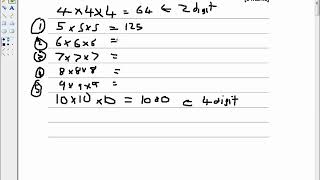 4 × 4 × 4 = 64 ← 2 digit
① 5 × 5 × 5 = 125
② 6 × 6 × 6 =
③ 7 × 7 × 7 =
④ 8 × 8 × 8 =
⑤ 9 × 9 × 9 =
10 × 10 × 10 = 1000 ← 4 digit